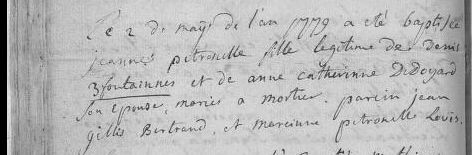 Le 2 de may de l'an 1779 a eté baptisée
jeanne petronille fille legitime de Denis
3fontainnes et de anne catherinne Dedoyard
son epouse, mariés a mortier. parein jean
gilles Bertrand, et mareinne petronille Louis.